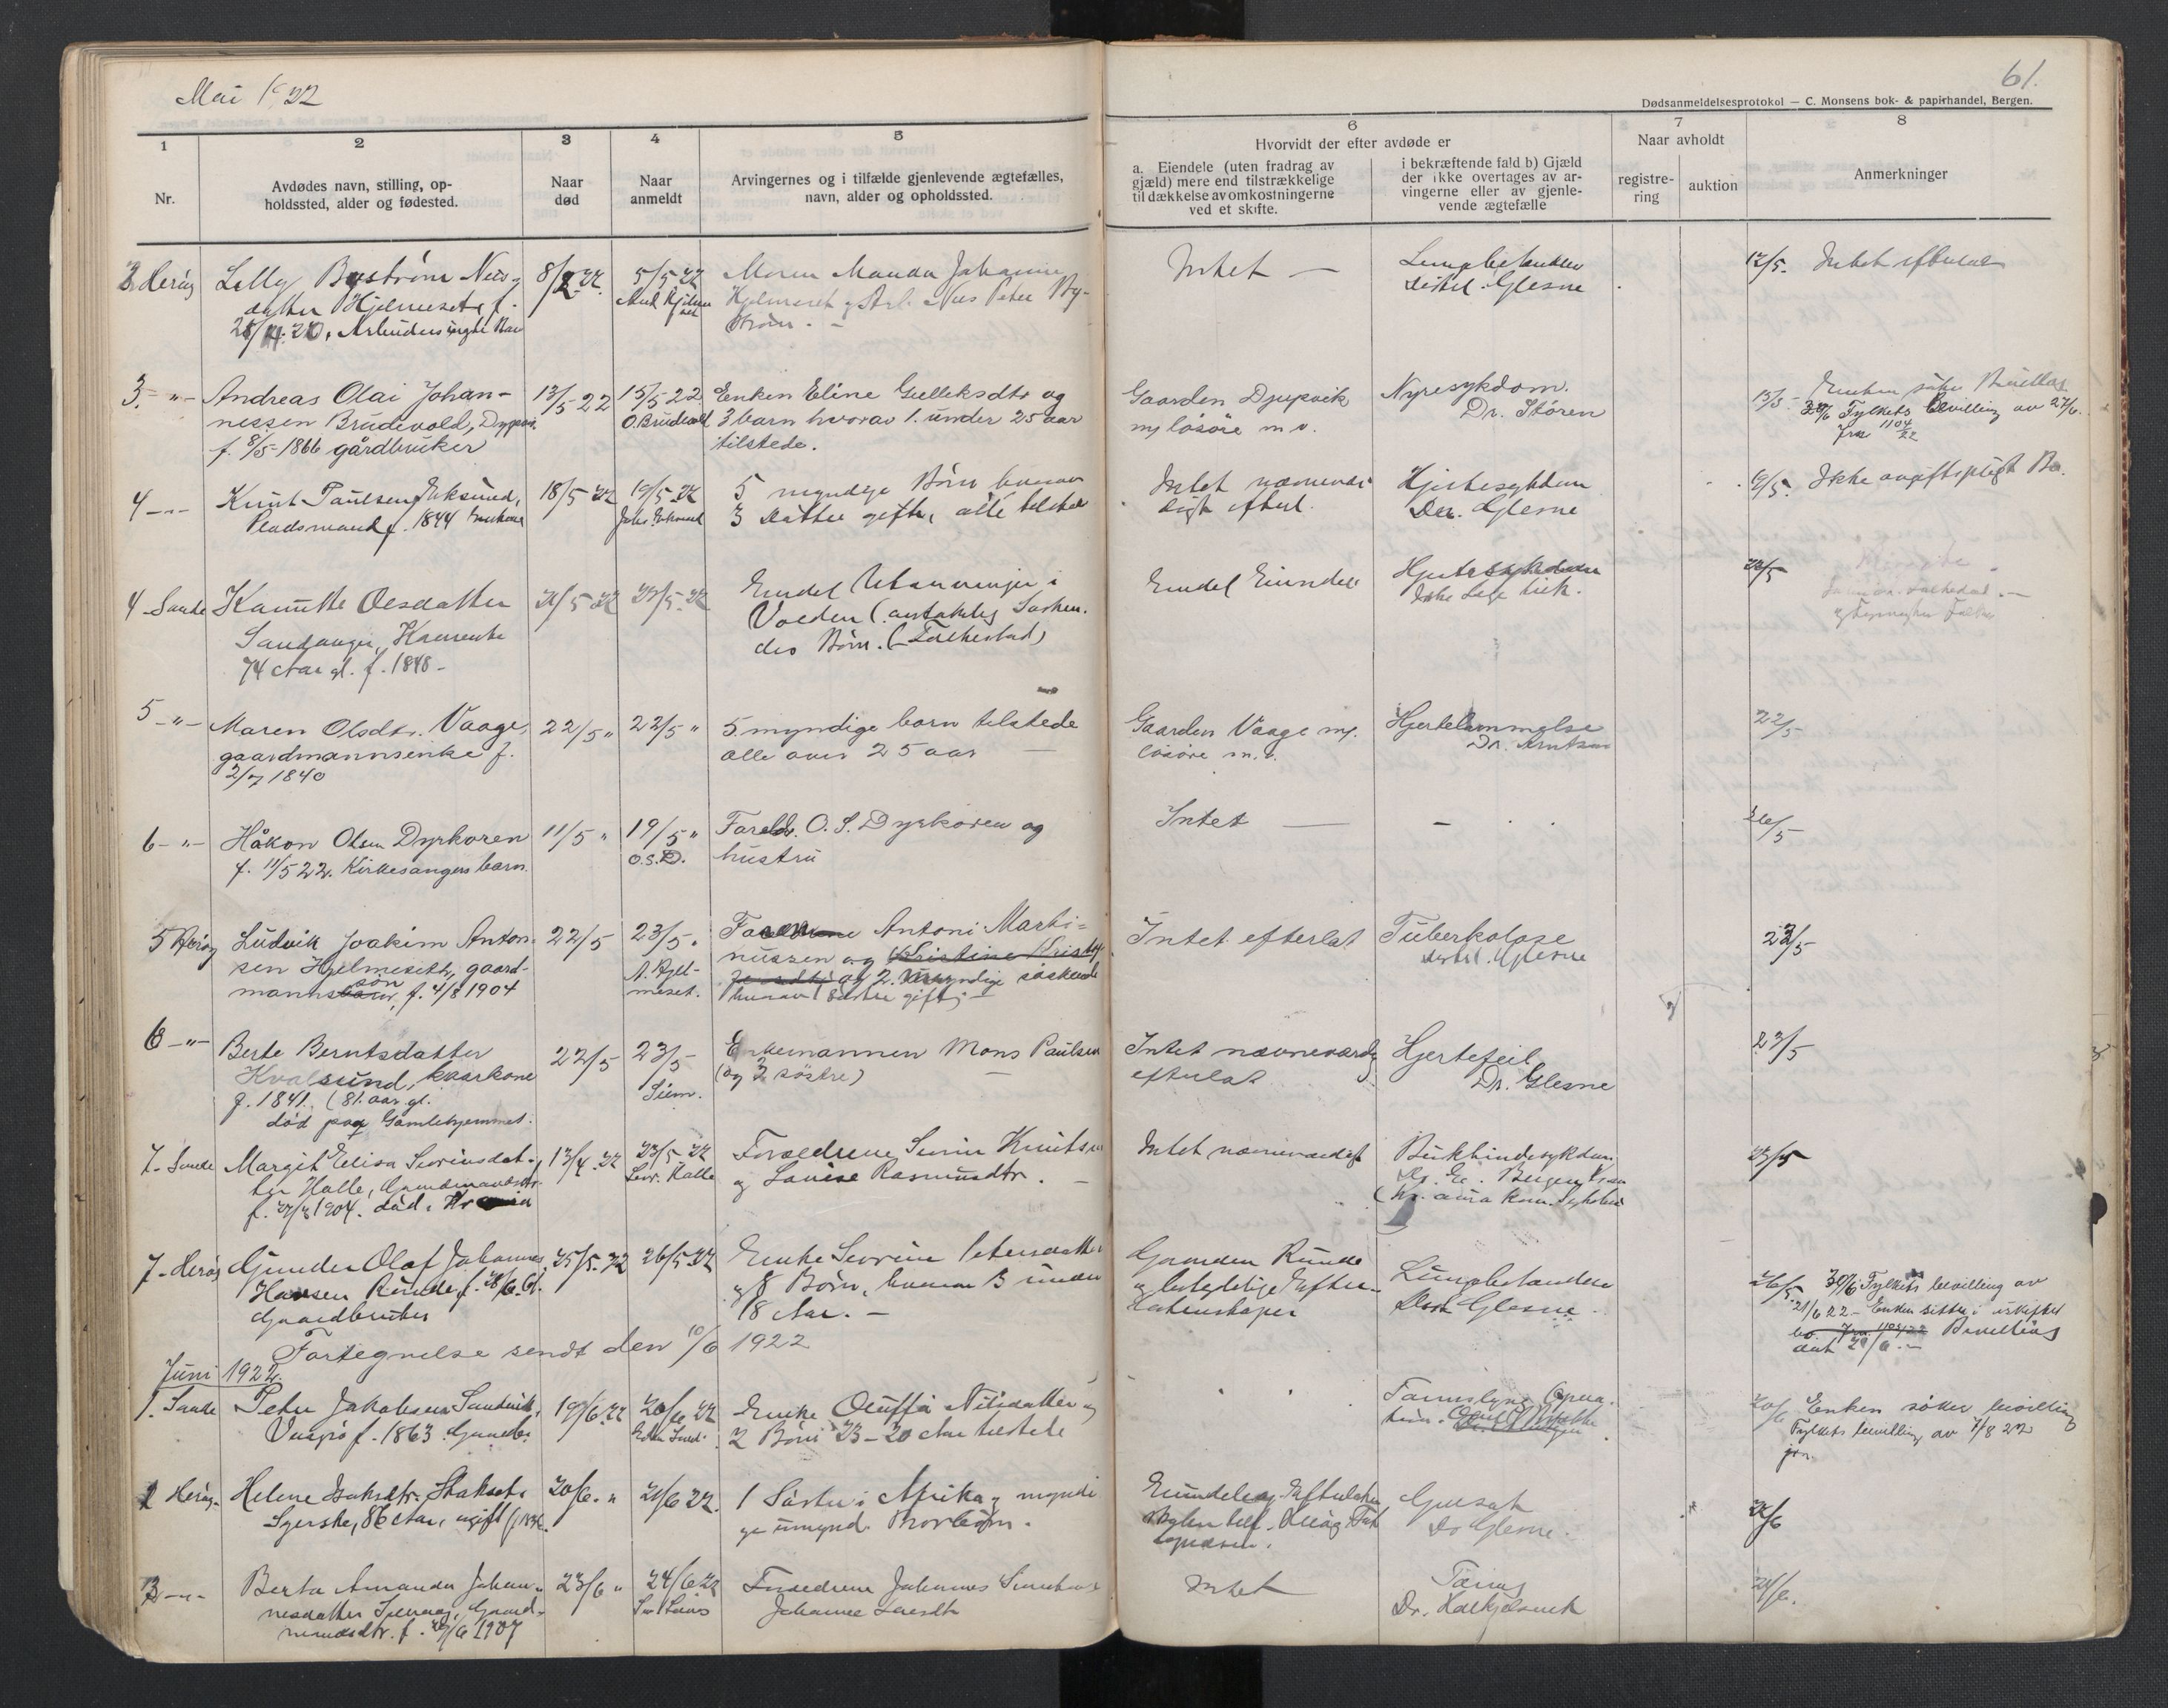 Mai 1922
61.
Dødsanmeldelsesprotokol — C. Monsens bok- & papirhandel, Bergen.
1
Nr.
2
Avdødes navn, stilling, op-
holdssted, alder og fødested.
3
Naar
død
4
Naar
anmeldt
5
Arvingernes og i tilfælde gjenlevende ægtefælles,
navn, alder og opholdssted.
6
Hvorvidt der efter avdøde er
a. Eiendele (uten fradrag av
gjæld) mere end tilstrækkelige
til dækkelse av omkostningerne
ved et skifte.
i bekræftende fald b) Gjæld
der ikke overtages av ar-
vingerne eller av gjenle-
vende ægtefælle
7
Naar avholdt
registre-
ring
auktion
8
Anmerkninger
2 Herøy
Lilly Bystrøm Nils-
datter Hjelmeset, f.
5/5-22
Moren Manda Johanne
Hjelmeset og Arb. Nils Peter By-
strøm. -
Intet —
Lungebetændelse
Distrl. Glesne
12/5.
Intet efterlat
3. -"-
Andreas Olai Johan-
nessen Brudevold, Djupvik.
f. 8/5-1866 gårdbruker
13/5-22
15/5-22
O. Brudevold
Enken Eline Gulleksdtr og
3 barn hvorav 1. under 25 aar
tilstede.
Gaarden Djupvik
m/ løsøre m.v.
Nyresykdom.
Dr. Støren
15/5.
Enken søker Bevilling
30/6 Fylkets bevilling av 27/6.
Jrn 1104/22
4 -"-
Knut Paulsen Eksund,
Pladsmand f. 1844
18/5 22
19/5-22
Johs. Eksund
5 myndige Børn hvorav
3 Døttre gifte, alle tilstede
Intet nævnevær
digt efterl.
Hjertesykdom
Dr. Glesne
19/5.
Ikke avgiftspligt Bo.
4 Sande
Olsdatter
Sandanger,
74 Aar gl. f. 1848 -
21/5 22
22/5-22
Endel Utarvinger i
Volden (antakelig Søsken-
des Børn. (Folkestad)
Endel Eiendele
Hjertesykdom
Ikke Læge
22/5
5 -"-
Maren Olsdtr. Vaage,
gaardmannsenke f.
2/7 1840
22/5 "
22/5 "
5 myndige barn tilstede
alle over 25 aar —
Gaarden Vaage m/.
løsøre m.v.
Hjertelammelse
Dr. Arntsen
22/5
6 -"-
Håkon Olsen Dyrkoren
f. 11/5 22. Kirkesangers barn.
11/5 "
19/5 "
O.S.D.
Foreldr. O. S. Dyrkoren og
hustru
Intet —
26/5
5 Herøy
Ludvik Joakim Anton-
sen Hjelmeseth, gaard-
manns søn, f. 4/8 1904
22/5
23/5.
A. Hjel-
meset.
Faren Antoni Marti-
nussen og Kristine Krist
og 2. umyndige søskende
hvorav 1 søster gift; —
Intet efterlat
Tuberkolose
Distrl. Glesne
23/5
6 -"-
Berte Berntsdatter
Kvalsund, kaarkone
f. 1841. (81. aar gl.
død paa Gamlehjemmet.
22/5
23/5
Siem.
Enkemannen Mons Paulsen
(og 2 søstre) —
Intet nævneværdig
efterlat
Hjertefeil
Dr. Glesne
23/5
7. Sande
Margit Elisa Severinsdat-
ter Halle, Gaardmandsdtr.
13/4.22
23/5 22
Sev. Halle
Forældrene Severin Knutsen
og Lovise Rasmusdtr. —
Intet nævneværdigt
Bukhindesykdom
23/5
7 - Herøy
Gunder Olaf Johannes
Hansen Runde, f.
Gaardbruker
25/5.22
26/5 22
Enke Severine Petersdatter
og 8 Børn, hvorav 3 under
18 Aar. —
Gaarden Runde
og Efter-
latenskaper
Lungebetændelse
Distr. Glesne
26/5
30/6 Fylkets bevilling av
21/6 22 - Enken sitter i uskiftet
bo. Jrn. 1103/22 Bevilling
dat 29/6. -
Fortegnelse sendt den 10/6 1922
Juni 1922.
1. Sande
Peter Jakobsen Sandvik,
f. 1863
19/6.22
20/6 22
Enke Nilsdatter og
2 Børn 23-20 Aar tilstede
20/6
Enken søker bevilling
Fylkets bevilling av 7/8 22
jrn.
2 Herøy.
Helene Staksett
86 Aar, ugift
20/6. "
21/6 22.
1 Søster i Afrika og myndi
ge umynd. Brorbørn.
Dr Glesne.
21/6
3 -"-
Berta Amanda Johan-
nesdatter
f. 1907
23/6 "
24/6 22
Forældrene Johannes
Johanne
Intet
Dr.
24/6.